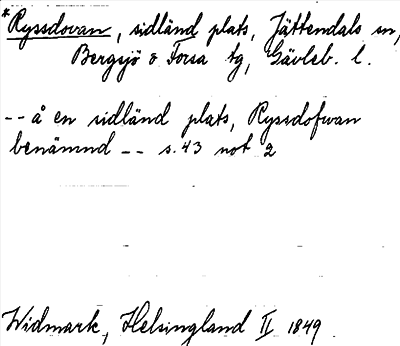 *Ryssdovan, sidländ plats, Jättendals sn,
Bergsjö o Forsa tg, Gävleb. l.
-- å en sidländ plats, Ryssdofwan
benämnd -- s. 43 not 2
Widmark, Helsingland II 1849